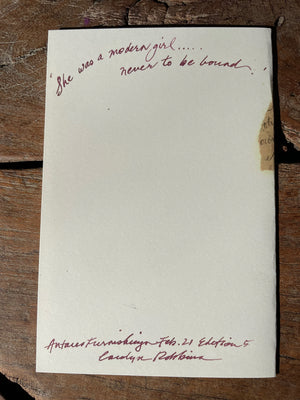 "She was a modern girl.....
never to be bound."
Furnishings Feb. 21 Edition 5
Robbins